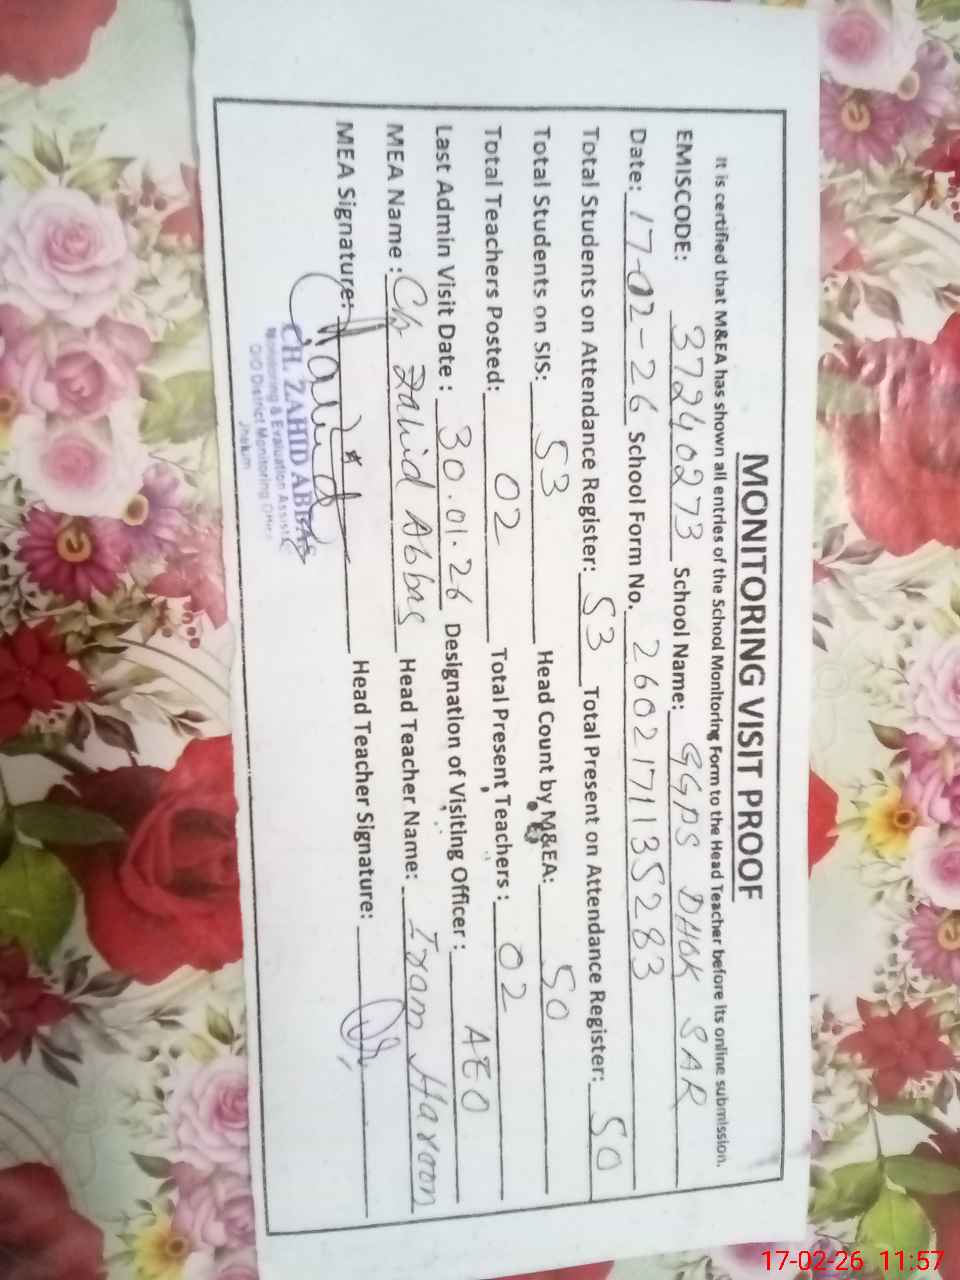 MONITORING VISIT PROOF
It is certified that M&EA has shown all entries of the School Monitoring Form to the Head Teacher before its online submission.
EMISCODE: 37240273 School Name: GGPS DHOK SAR
Date: 17-02-26 School Form No. 2602171135283
Total Students on Attendance Register: 53 Total Present on Attendance Register: 50
Total Students on SIS: 53 Head Count by M&EA: 50
Total Teachers Posted: 02 Total Present Teachers: 02
Last Admin Visit Date: 30.01.26 Designation of Visiting Officer: AEO
MEA Name: Ch Zahid Abbas Head Teacher Name: Iram Haroon
MEA Signature: Head Teacher Signature:
CH. ZAHID ABBAS
Monitoring & Evaluation Assistt
O/O District Monitoring Officer
Jhelum
17-02-26 11:57